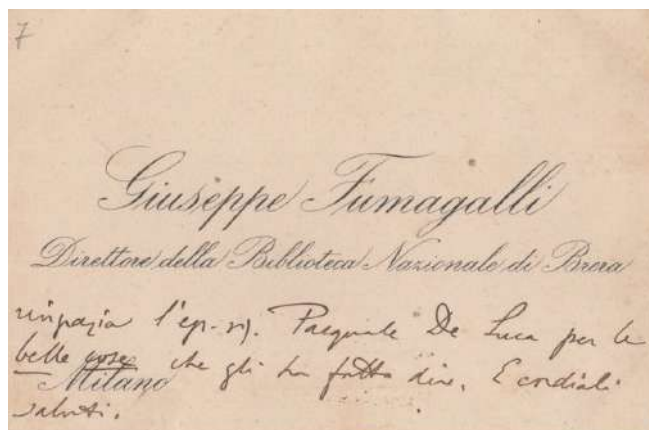 7
Giuseppe Fumagalli
Direttore della Biblioteca Nazionale di Brera
ringrazia l'eg. sig. Pasquale De Luca per le
belle cose che gli ha fatto dire. E cordiali
Milano
saluti.